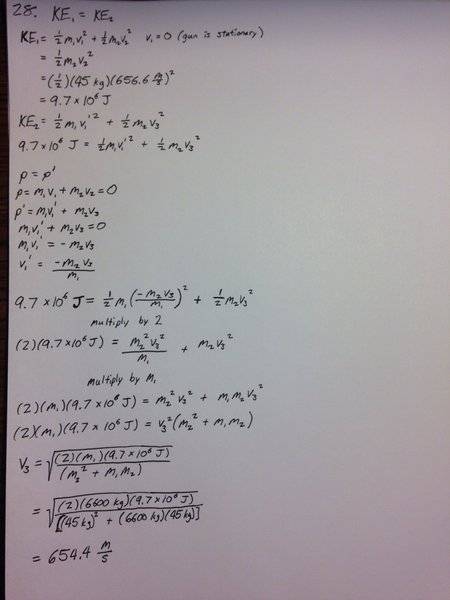 28. KE₁ = KE₂
KE₁ = ½m₁v₁² + ½m₂v₂² v₁ = 0 (gun is stationary)
= ½m₂v₂²
= (½)(45 kg)(656.6 m/s)²
= 9.7 × 10⁶ J
KE₂ = ½m₁v₁'² + ½m₂v₃²
9.7 × 10⁶ J = ½m₁v₁'² + ½m₂v₃²
p = p'
p = m₁v₁ + m₂v₂ = 0
p' = m₁v₁' + m₂v₃
m₁v₁' + m₂v₃ = 0
m₁v₁' = -m₂v₃
v₁' = -m₂v₃/m₁
9.7 × 10⁶ J = ½m₁(-m₂v₃/m₁)² + ½m₂v₃²
multiply by 2
(2)(9.7 × 10⁶ J) = m₂²v₃²/m₁ + m₂v₃²
multiply by m₁
(2)(m₁)(9.7 × 10⁶ J) = m₂²v₃² + m₁m₂v₃²
(2)(m₁)(9.7 × 10⁶ J) = v₃²(m₂² + m₁m₂)
v₃ = √((2)(m₁)(9.7 × 10⁶ J)/(m₂² + m₁m₂))
= √((2)(6600 kg)(9.7 × 10⁶ J)/[(45 kg)² + (6600 kg)(45 kg)])
= 654.4 m/s